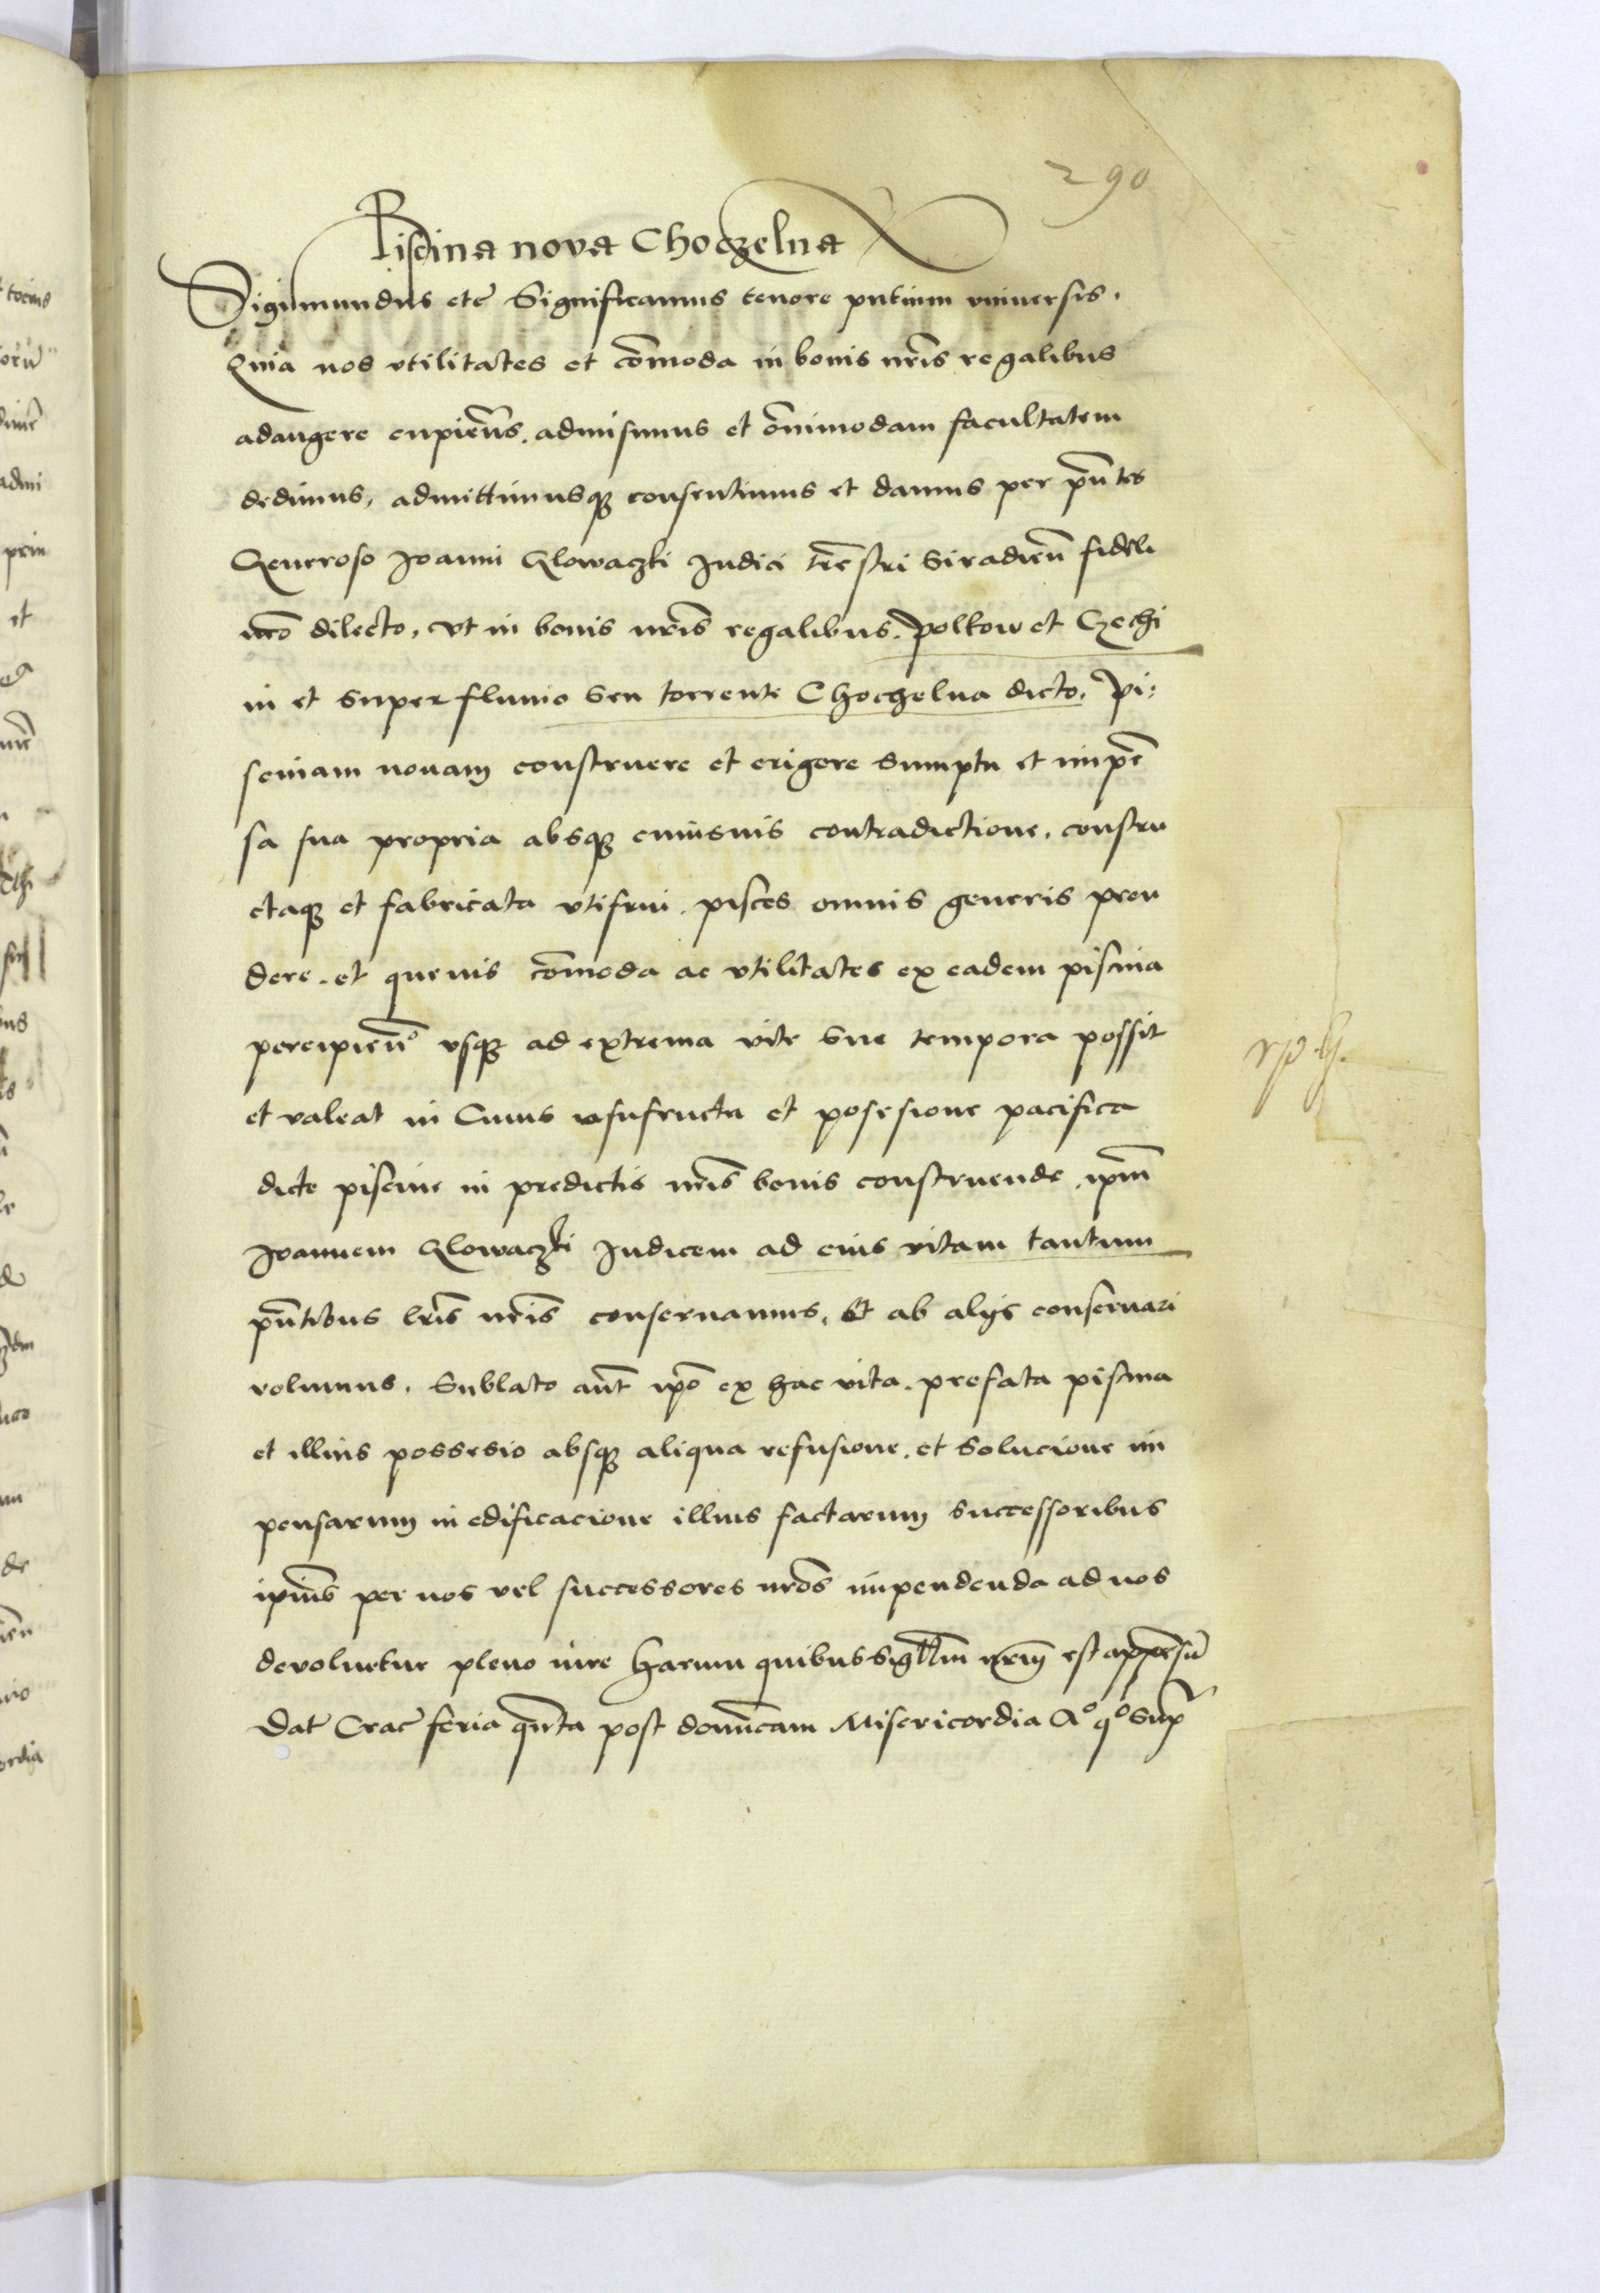 290
Piscina nova Choczelna
Sigismundus etc̄ Significamus tenore pn̄tium vniuersis.
Quia nos vtilitates et com̄oda in bonis nr̄is regalibus
adaugere cupien̄s. admisimus et om̄nimodam facultatem
dedimus, admittimusqꝫ consentimus et damus per pn̄tes
Generoso Joanni Glowaczki Judici trēstri Siradien̄ fideli
nr̄o dilecto, vt in bonis nr̄is regalibus. Polkow et Czechi
in et super fluuio seu torrente Choczelna dicto, pi:
scinam nouam construere et erigere sumptu et impē
sa sua propria absqꝫ cuiusuis contradictione, constru
ctaqꝫ et fabricata vtifrui. pisces omnis generis pren
dere. et queuis com̄oda ac vtilitates ex eadem piscina
percipien̄ vsqꝫ ad extrema vite sue tempora possit
et valeat in Cuius vsufructu et posesione pacifica
dicte piscine in predictis nr̄is bonis construende. ip̄m
Joannem Glowaczki Judicem ad eius vitam tantum
pn̄tibus lr̄is nr̄is conseruamus, Et ab alijs conseruari
volumus. Sublato aūt ip̄o ex hac vita. prefata piscina
et illius possesio absqꝫ aliqua refusione. et solucione im
pensarum in edificacione illius factarum successoribus
ip̄ius per nos vel successores nr̄os impendenda ad nos
devoluetur pleno iure Harum quibus sigillm̄ nr̄m est appensū
Dat̄ Crac̄ feria qn̄ta post domīcam Misericordia Aº qº sup̄